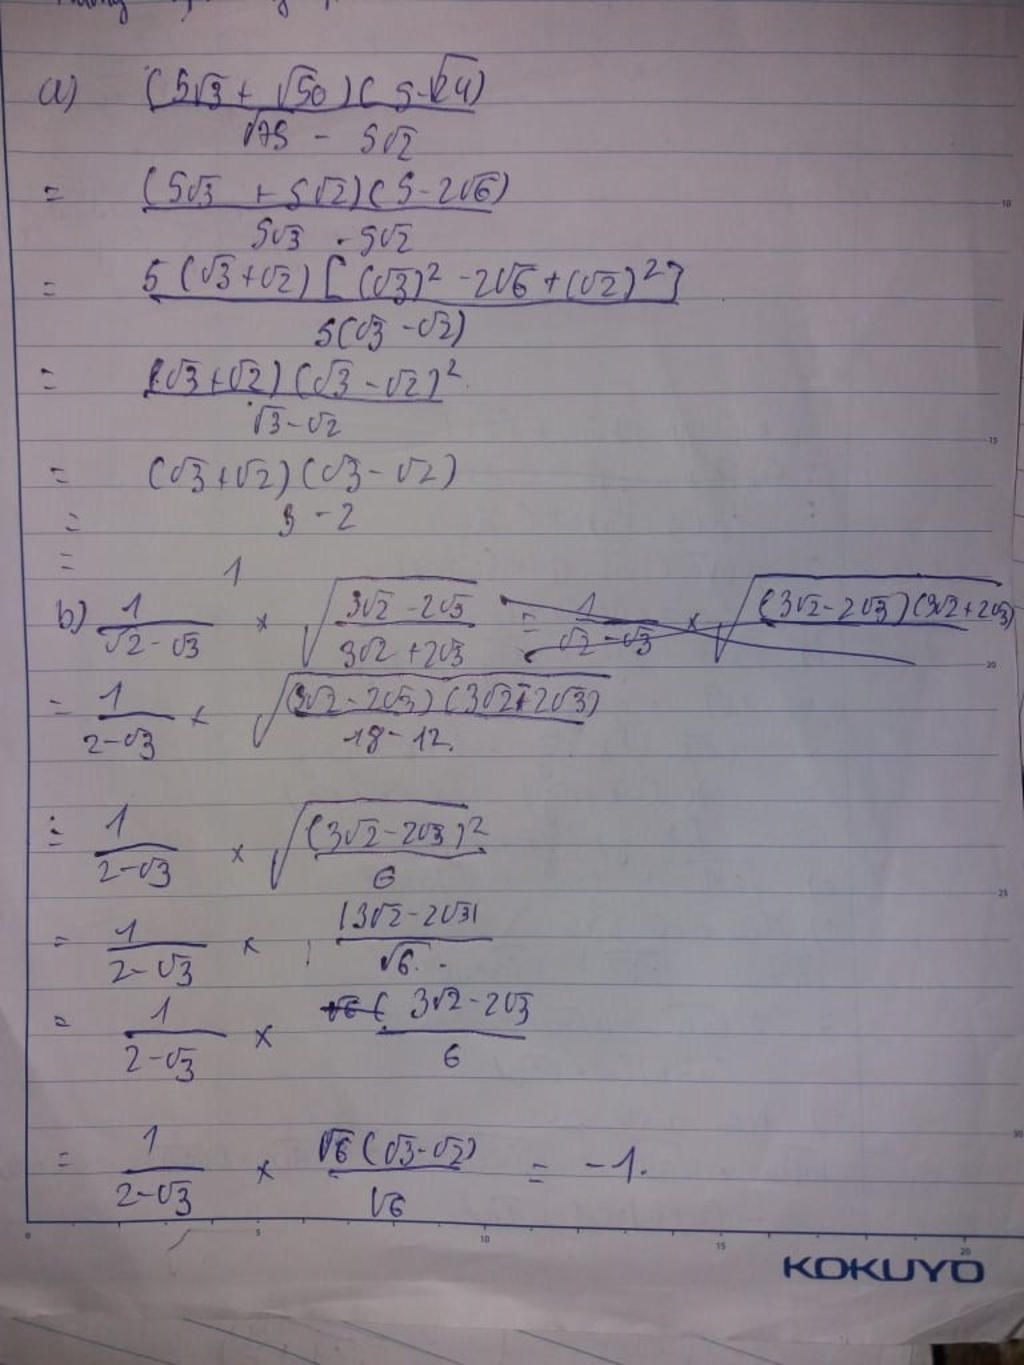 a) (5√3 + √50)(5-√24) / √75 - 5√2
= (5√3 + 5√2)(5-2√6) / 5√3 - 5√2
= 5(√3+√2)[(√3)² -2√6+(√2)²] / 5(√3 -√2)
= (√3+√2)(√3-√2)² / √3-√2
= (√3+√2)(√3-√2)
= 3 - 2
= 1
b) 1 / √2-√3 × √(3√2-2√3 / 3√2+2√3) = 1 / √2-√3 × √((3√2-2√3)(3√2+2√3))
= 1 / 2-√3 × √((3√2-2√3)(3√2+2√3) / 18-12)
= 1 / 2-√3 × √((3√2-2√3)² / 6)
= 1 / 2-√3 × |3√2-2√3| / √6
= 1 / 2-√3 × 3√2-2√3 / 6
= 1 / 2-√3 × √6(√3-√2) / √6 = -1.
10
15
20
25
30
0 5 10 15 20
KOKUYO